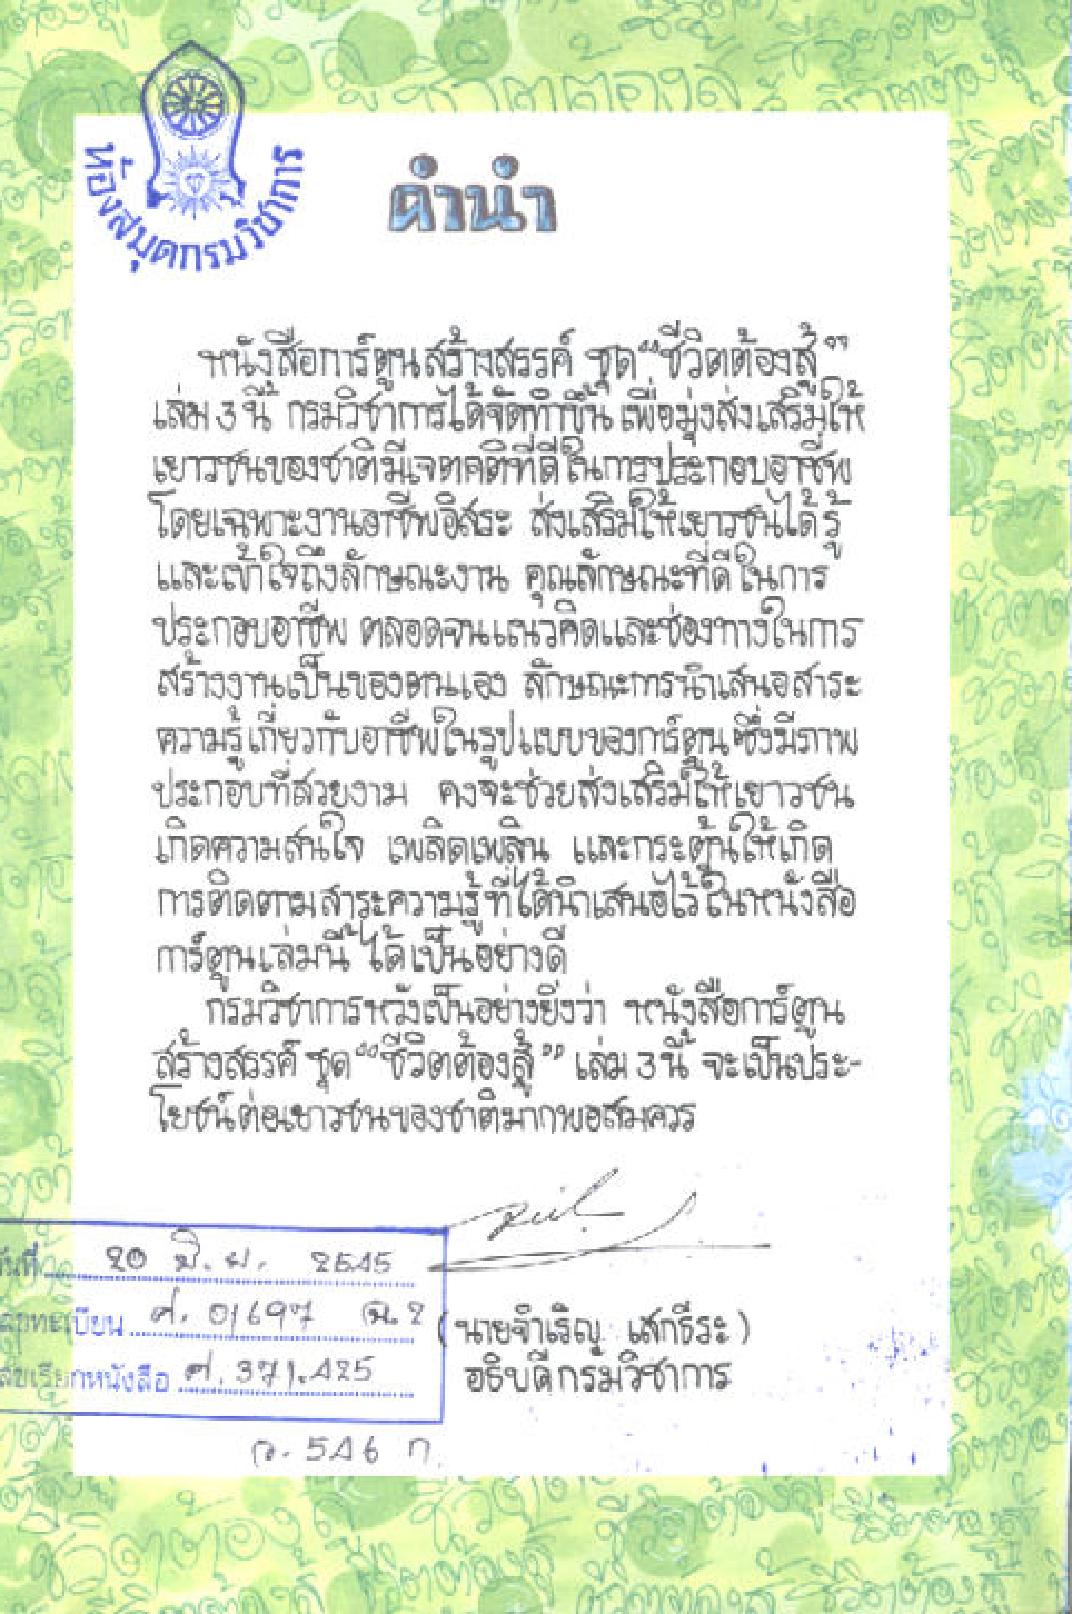 ห้องสมุดกรมวิชาการ
คำนำ
หนังสือการ์ตูนสร้างสรรค์ ชุด “ชีวิตต้องสู้”
เล่ม 3 นี้ กรมวิชาการได้จัดทำขึ้น เพื่อมุ่งส่งเสริมให้
เยาวชนของชาติมีเจตคติที่ดีในการประกอบอาชีพ
โดยเฉพาะงานอาชีพอิสระ ส่งเสริมให้เยาวชนได้รู้
และเข้าใจถึงลักษณะงาน คุณลักษณะที่ดีในการ
ประกอบอาชีพ ตลอดจนแนวคิดและช่องทางในการ
สร้างงานเป็นของตนเอง ลักษณะการนำเสนอสาระ
ความรู้เกี่ยวกับอาชีพในรูปแบบของการ์ตูน ซึ่งมีภาพ
ประกอบที่สวยงาม คงจะช่วยส่งเสริมให้เยาวชน
เกิดความสนใจ เพลิดเพลิน และกระตุ้นให้เกิด
การติดตามสาระความรู้ที่ได้นำเสนอไว้ในหนังสือ
การ์ตูนเล่มนี้ ได้เป็นอย่างดี
กรมวิชาการหวังเป็นอย่างยิ่งว่า หนังสือการ์ตูน
สร้างสรรค์ ชุด “ชีวิตต้องสู้” เล่ม 3 นี้ จะเป็นประ-
โยชน์ต่อเยาวชนของชาติมากพอสมควร
(นายจำเริญ เสกธีระ)
อธิบดีกรมวิชาการ
วันที่ 20 มิ.ย. 2545
เลขทะเบียน ศ. 01697 ฉ.2
เลขเรียกหนังสือ ศ. 371.425
ก